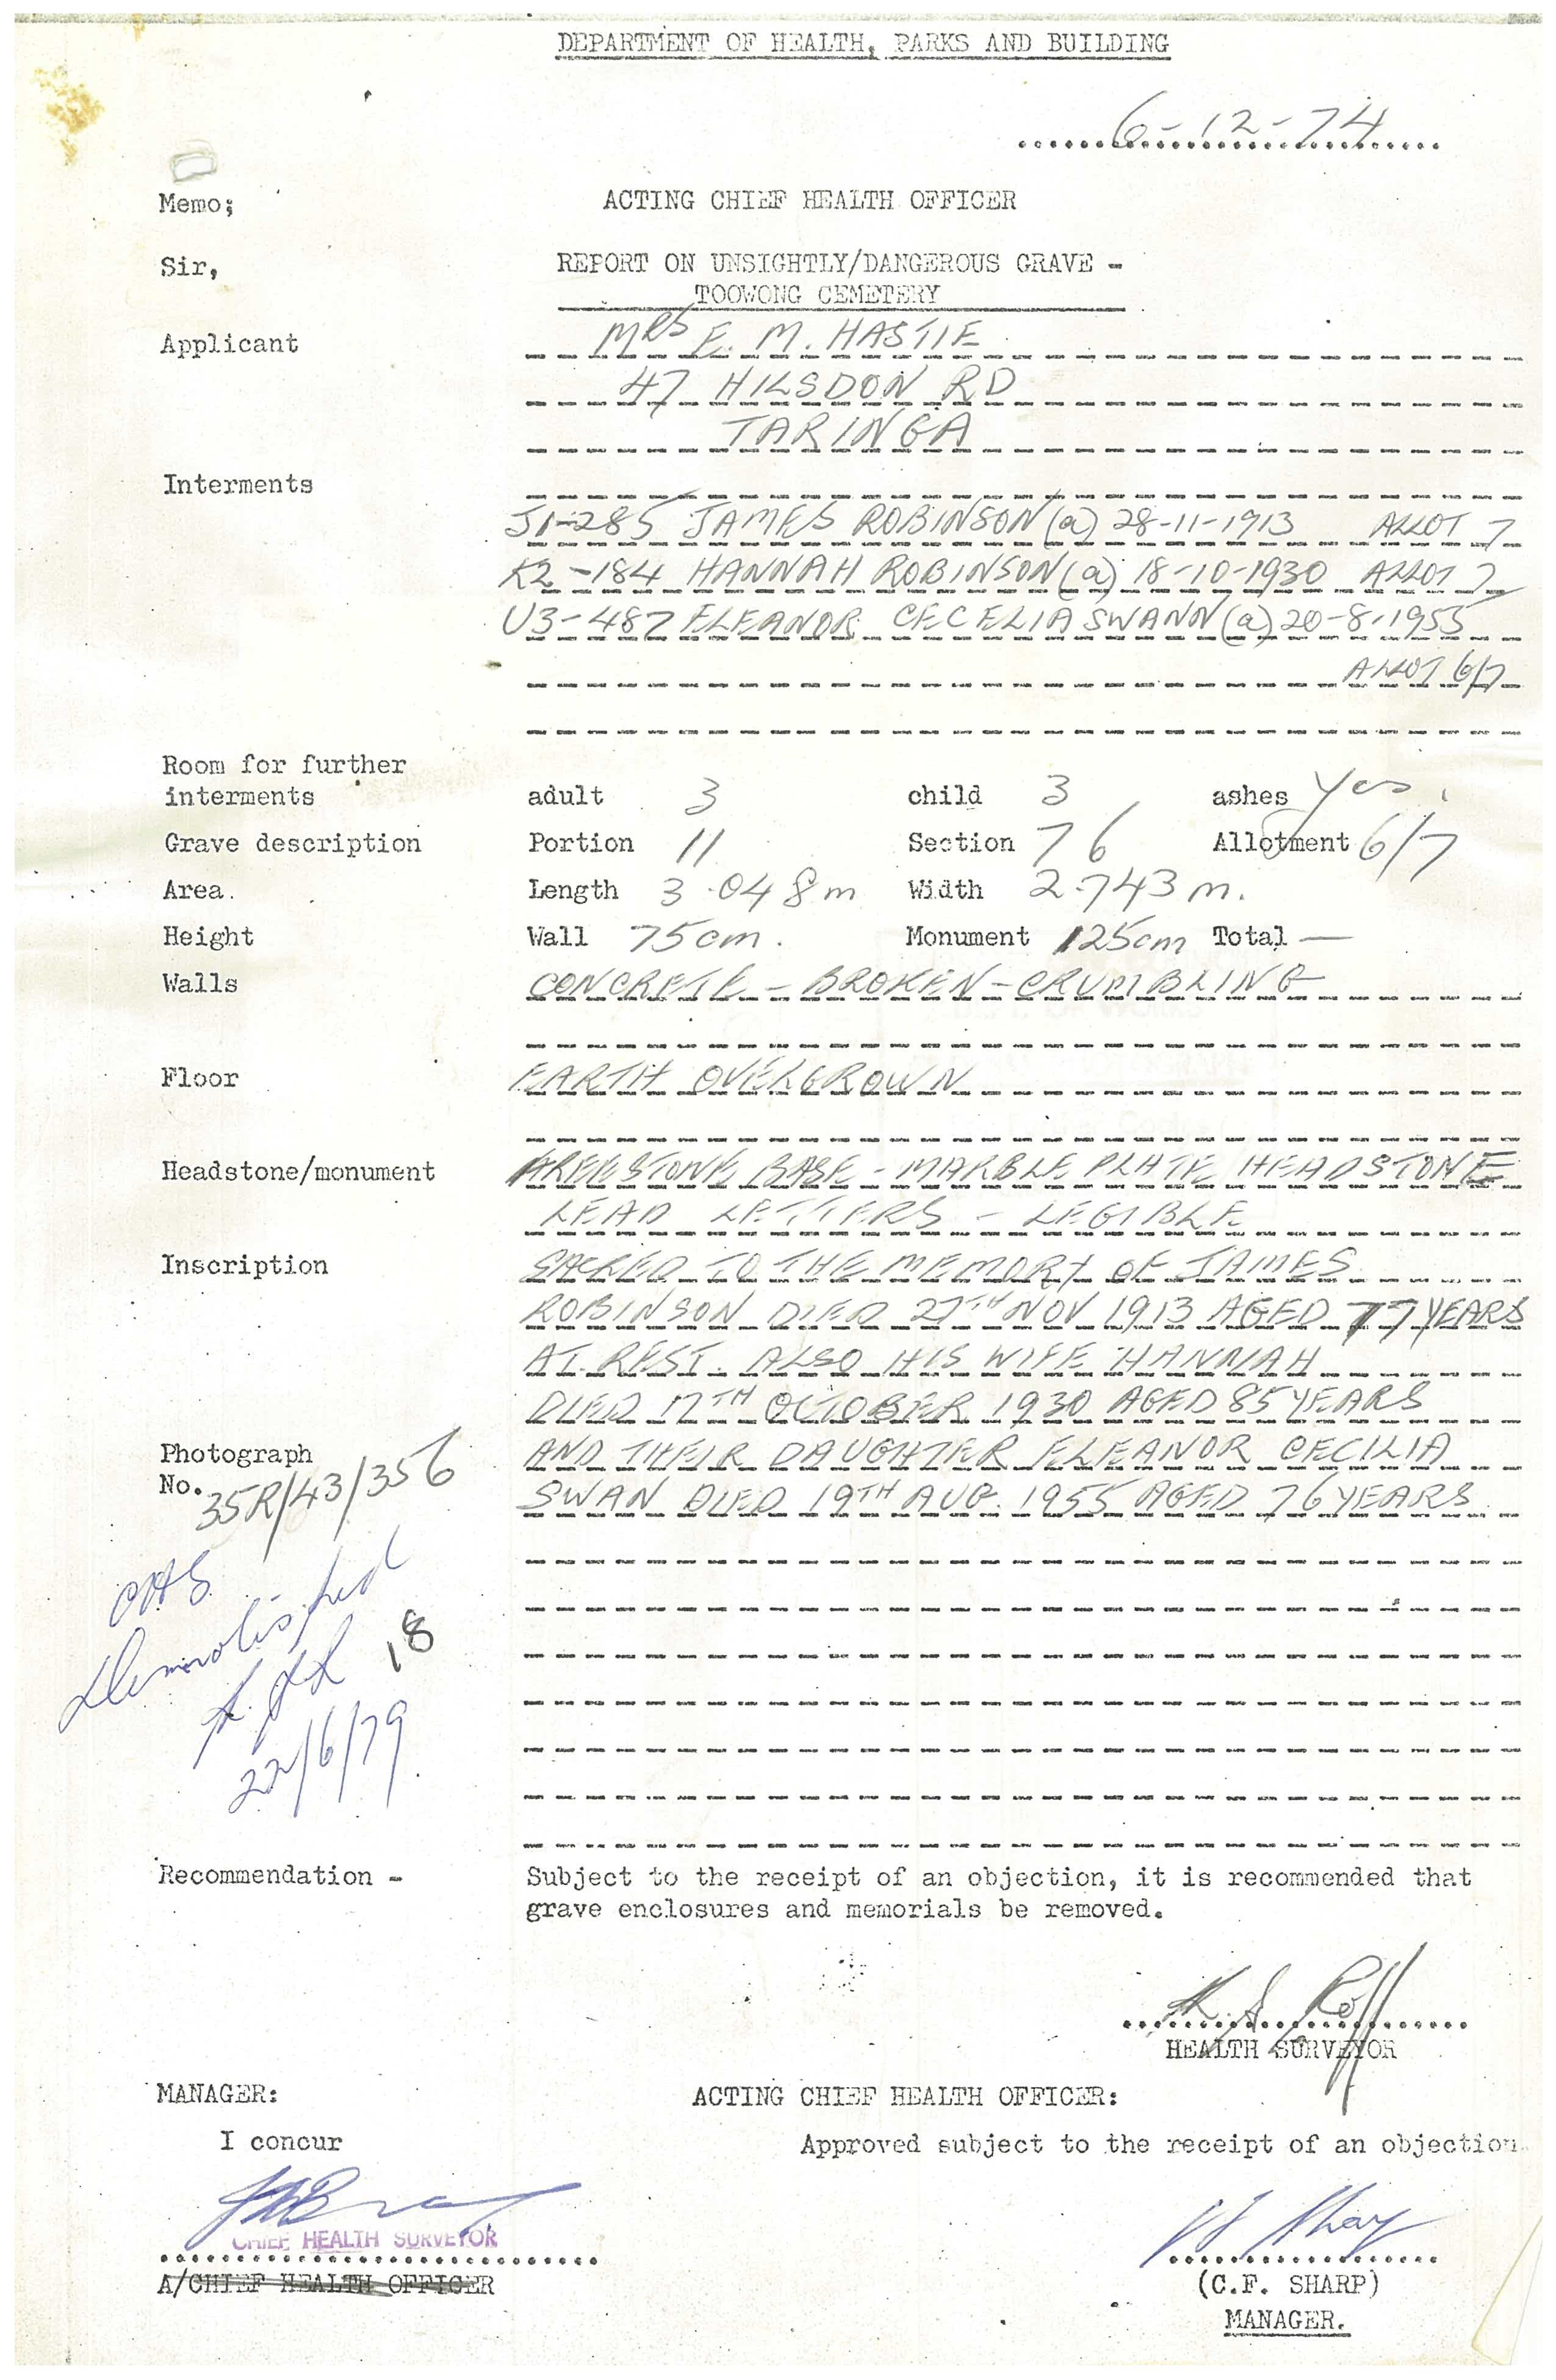 DEPARTMENT OF HEALTH, PARKS AND BUILDING
6-12-74
Memo; ACTING CHIEF HEALTH OFFICER
Sir, REPORT ON UNSIGHTLY/DANGEROUS GRAVE -
TOOWONG CEMETERY
Applicant MRS E. M. HASTIE
47 HILSDON RD
TARINGA
Interments
J1-285 JAMES ROBINSON (a) 28-11-1913 ALLOT 7
K2-184 HANNAH ROBINSON (a) 18-10-1930 ALLOT 7
U3-487 ELEANOR CECELIA SWANN (a) 20-8-1955
ALLOT 6/7
Room for further
interments adult 3 child 3 ashes Yes.
Grave description Portion 11 Section 76 Allotment 6/7
Area. Length 3.048m Width 2.743m.
Height Wall 75cm. Monument 125cm Total —
Walls CONCRETE - BROKEN - CRUMBLING
Floor EARTH OVERGROWN
Headstone/monument FREESTONE BASE - MARBLE PLATE HEADSTONE
LEAD LETTERS - LEGIBLE
Inscription SACRED TO THE MEMORY OF JAMES
ROBINSON DIED 27TH NOV 1913 AGED 77 YEARS
AT REST. ALSO HIS WIFE HANNAH
DIED 17TH OCTOBER 1930 AGED 85 YEARS
Photograph AND THEIR DAUGHTER ELEANOR CECILIA
No. 35R/43/356 SWAN DIED 19TH AUG. 1955 AGED 76 YEARS
Demolished
18
22/6/79
Recommendation - Subject to the receipt of an objection, it is recommended that
grave enclosures and memorials be removed.
HEALTH SURVEYOR
MANAGER: ACTING CHIEF HEALTH OFFICER:
I concur Approved subject to the receipt of an objection.
CHIEF HEALTH SURVEYOR
A/CHIEF HEALTH OFFICER (C.F. SHARP)
MANAGER.